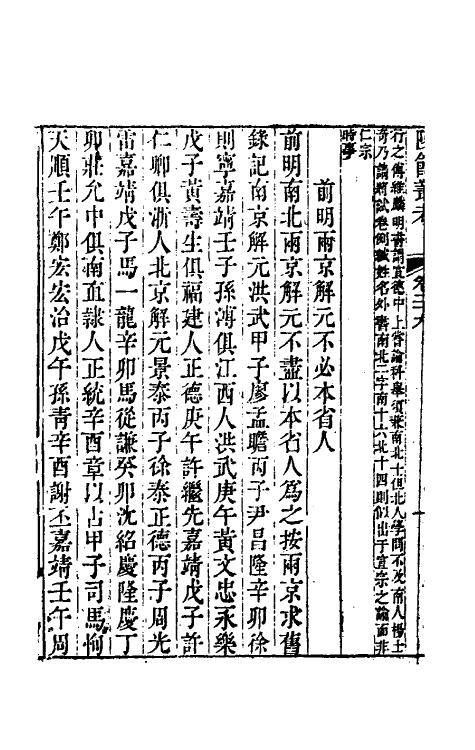 陔餘叢考 卷二十九
行之傅維鱗明書謂宣德中上嘗論科舉須兼南北十但北人學問不及南人楊士
奇乃請將試卷例緘姓名外書南北二字南十六北十四則似出于宣宗之論而非
仁宗
時事
前明兩京解元不必本省人
前明南北兩京解元不盡以本省人為之按兩京求舊
錄記南京解元洪武甲子廖孟瞻丙子尹昌隆辛卯徐
則寧嘉靖壬子孫溥俱江西人洪武庚午黃文忠永樂
戊子黃壽生俱福建人正德庚午許繼先嘉靖戊子許
仁卿俱浙人北京解元景泰丙子徐泰正德丙子周光
雷嘉靖戊子馬一龍辛卯馬從謙癸卯沈紹慶隆慶丁
卯莊允中俱南直隸人正統辛酉章以占甲子司馬恂
天順壬午鄭宏宏治戊午孫青辛酉謝丕嘉靖壬午周